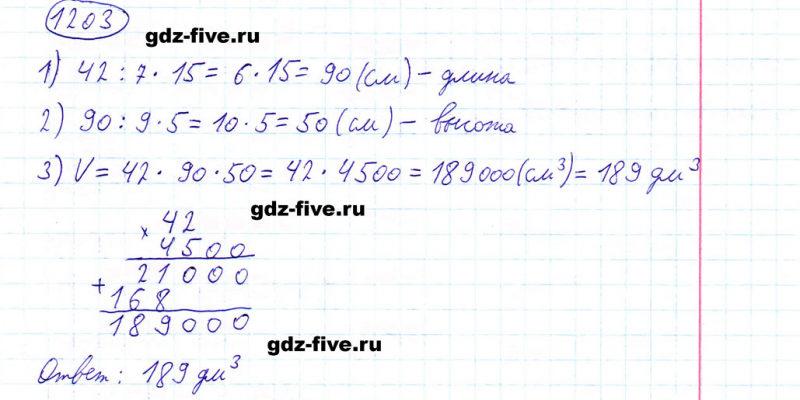 1203
gdz-five.ru
1) 42 : 7 · 15 = 6 · 15 = 90 (см) – длина
2) 90 : 9 · 5 = 10 · 5 = 50 (см) – высота
3) V = 42 · 90 · 50 = 42 · 4500 = 189000 (см³) = 189 дм³
gdz-five.ru
× 42
4500
+ 21000
168
189000
gdz-five.ru
Ответ: 189 дм³